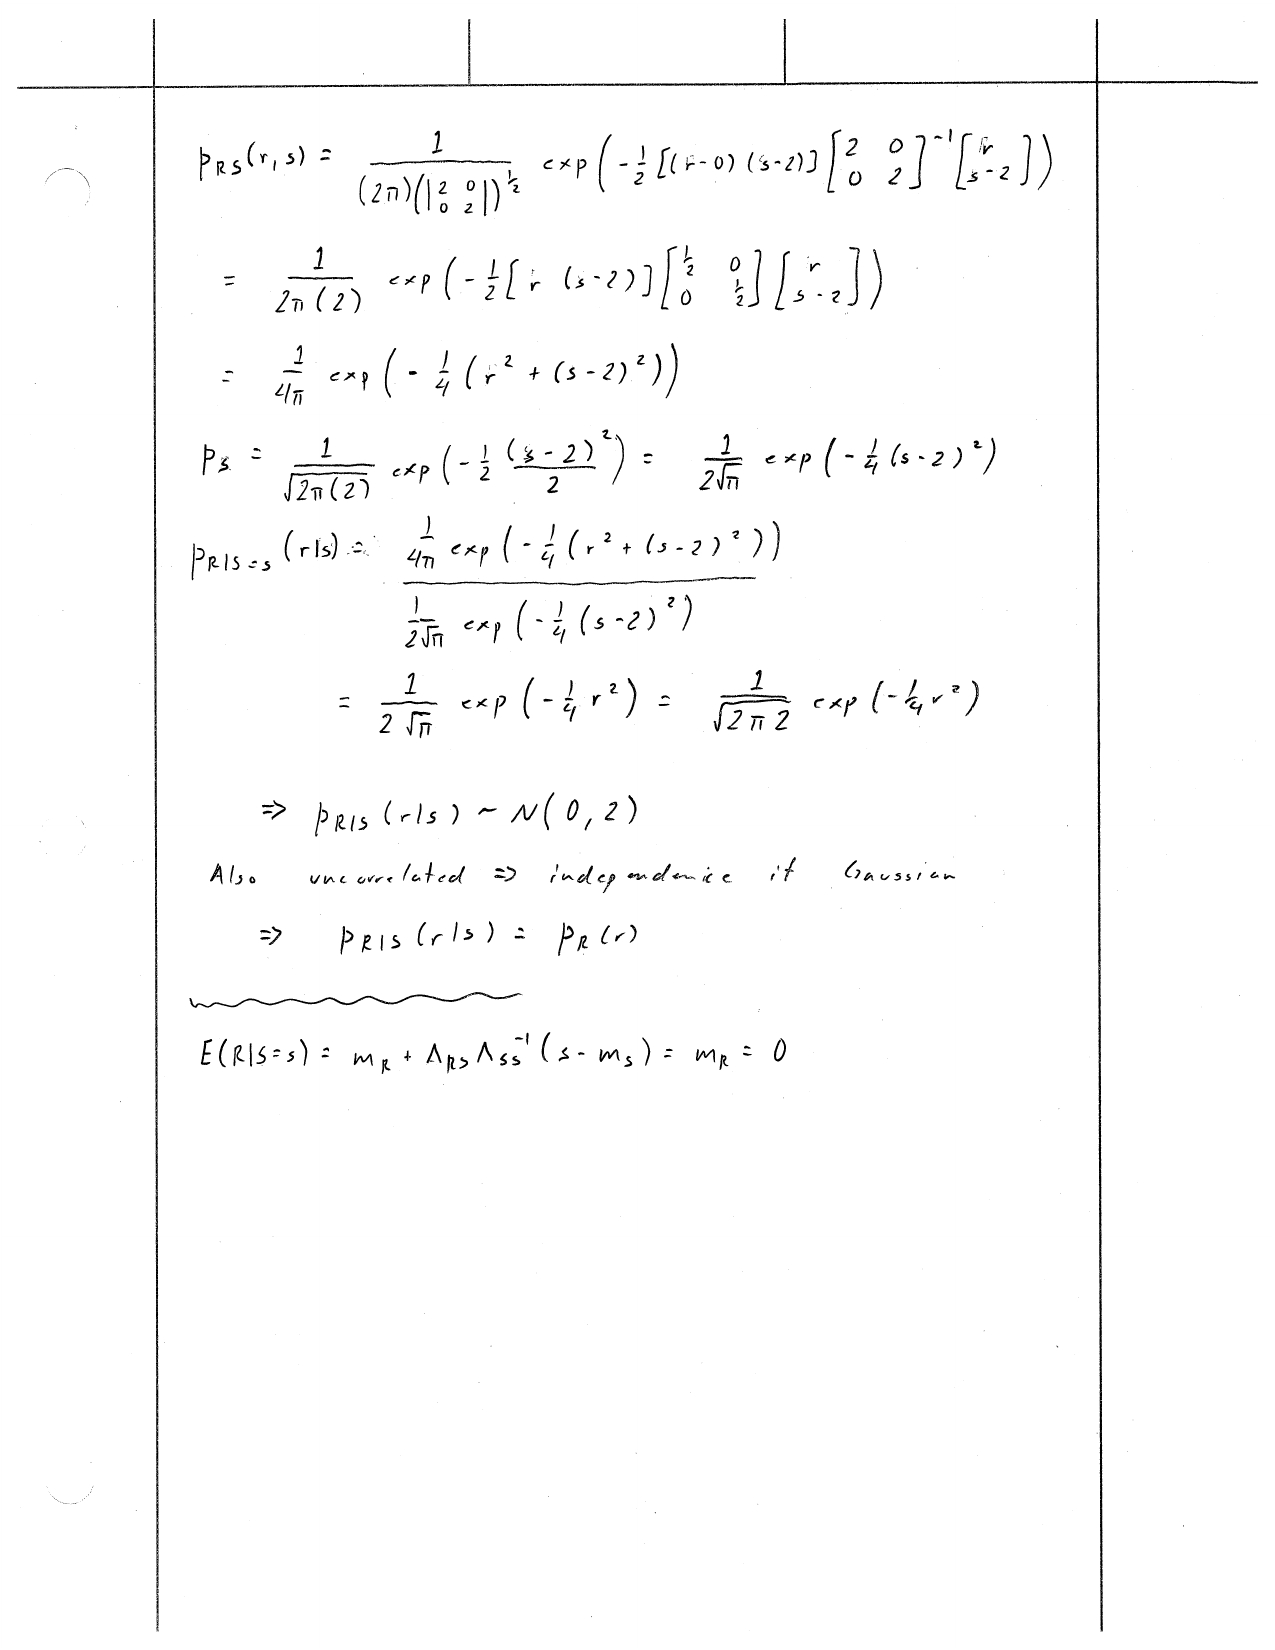 p_RS(r,s) = 1/((2π)(|2 0; 0 2|)^(1/2)) exp(-1/2 [(r-0) (s-2)] [2 0; 0 2]^(-1) [r; s-2])
= 1/(2π(2)) exp(-1/2 [r (s-2)] [1/2 0; 0 1/2] [r; s-2])
= 1/(4π) exp(-1/4 (r² + (s-2)²))
p_S = 1/√(2π(2)) exp(-1/2 (s-2)²/2) = 1/(2√π) exp(-1/4 (s-2)²)
p_R|S=s (r|s) = (1/(4π) exp(-1/4 (r² + (s-2)²))) / (1/(2√π) exp(-1/4 (s-2)²))
= 1/(2√π) exp(-1/4 r²) = 1/√(2π2) exp(-1/4 r²)
⇒ p_R|S (r|s) ~ N(0,2)
Also uncorrelated ⇒ independence if Gaussian
⇒ p_R|S (r|s) = p_R(r)
E(R|S=s) = m_R + Λ_RS Λ_SS^(-1) (s - m_S) = m_R = 0